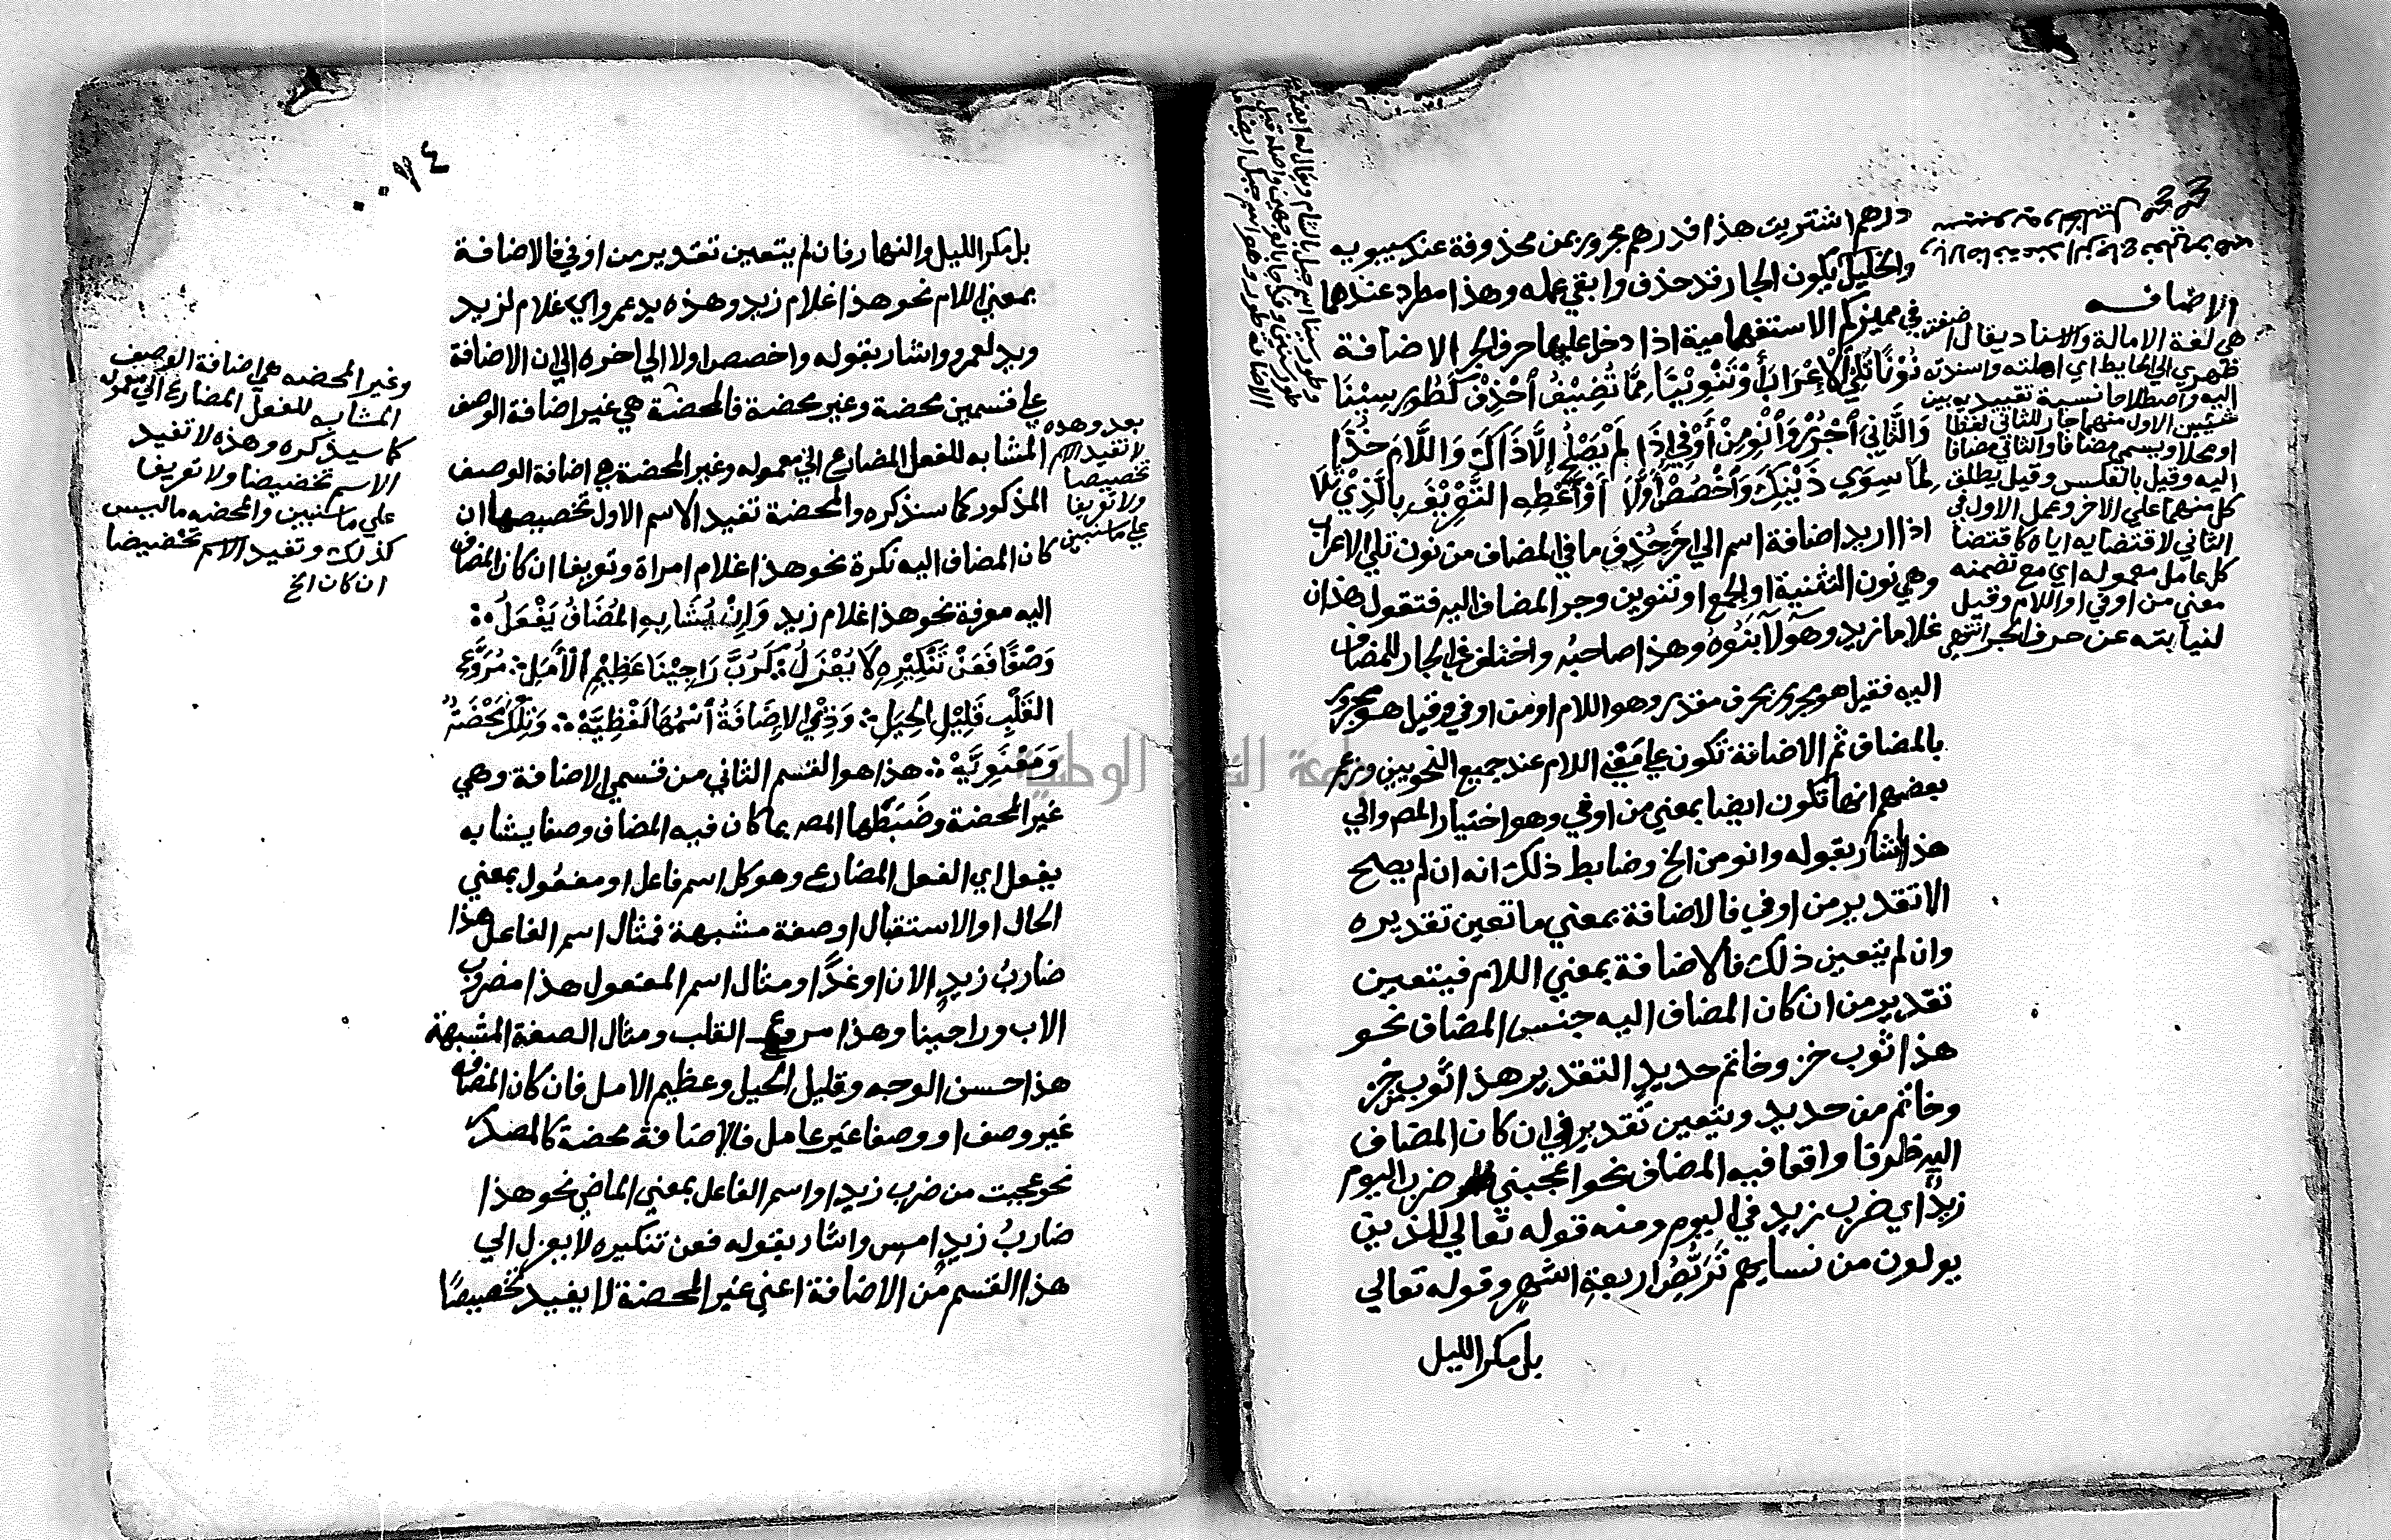 درهم اشتريت هذا فدرهم مجرور بمن محذوفة عند سيبويه
والخليل يكون الجار قد حذف وابقي عمله وهذا مطرد عندهما
في مميز كم الاستفهامية اذا دخل عليها حرف الجر الاضافة
نُوْنًا تَلِي الْاِعْرَابَ أَوْ تَنْوِيْنَا مِمَّا تُضِيْفُ أحْذِفْ كَطُوْرِسِيْنِيَا
وَالثَّانِي أجْرُرْ وَأنْوِ مِنْ أَوْ فِي إِذَا لَمْ يَصْلُحِ إلَّا ذَاكَ وَاللَّامَ خُذَا
لِمَا سِوَي ذَيْنِكَ وَأخْصُصْ أَوَّلَا أَوْ أَعْطِهِ التَّعْرِيْفَ بِالَّذِيْ تَلَا
اذا اريد اضافة اسم الي اخر حُذِفَ ما في المضاف من نون تلي الاعراب
وهي نون التثنية او الجمع او تنوين وجر المضاف اليه فتقول هذان
غلاما زيد وهولآ بَنُوهُ وهذا صاحبُه واختلف في الجار للمضاف
اليه فقيل هو مجرور بحرف مقدر وهو اللام او من او في وقيل هو مجرور
بالمضاف ثم الاضافة تكون علي مَعْنَي اللام عند جميع النحويين وزعم
بعضهم انها تكون ايضا بمعني من او في وهو اختيار المص والي
هذا اشار بقوله وانو من الخ وضابط ذلك انه ان لم يصح
الا تقدير من او في فالاضافة بمعني ما تعين تقديره
وان لم يتعين ذلك فالاضافة بمعني اللام فيتعين
تقدير من ان كان المضاف اليه جنس المضاف نحو
هذا ثوب خز وخاتم حديد التقدير هذا ثوب من خز
وخاتم من حديد ويتعين تقدير في ان كان المضاف
اليه ظرفا واقعا فيه المضاف نحو اعجبني ضرب اليوم
زيدًا اي ضرب زيد في اليوم ومنه قوله تعالي للذين
يولون من نسايهم تَرَبُّصُ اربعةِ اشهرٍ وقوله تعالي
بل مكر الليل
الاضافه
هي لغة الامالة والاسناد يقال اضفت
ظهري الي الحايط اي املته واسندته
اليه واصطلاحا نسبة تقييديه بين
شيئين الاول منهما جار للثاني لفظا
او محلا ويسمي مضافا والثاني مضافا
اليه وقيل بالعكس وقيل يطلق
كل منهما علي الاخر وعمل الاول في
الثاني لاقتضايه اياه كاقتضا
كل عامل معموله اي مع تضمنه
معني من او في او اللام وقيل
لنيابته عن حرف الجر انتهي
٧٤
بل مكر الليل والنهار فان لم يتعين تقدير من او في فالاضافة
بمعني اللام نحو هذا غلام زيد وهذه يد عمرو اي غلام لزيد
ويد لعمرو واشار بقوله واخصص اولا الي اخره الي ان الاضافة
علي قسمين محضة وغير محضة فالمحضة هي غير اضافة الوصف
المشابه للفعل المضارع الي معموله وغير المحضة هي اضافة الوصف
المذكور كما سنذكره والمحضة تفيد الاسم الاول تخصيصا ان
كان المضاف اليه نكرة نحو هذا غلام امراة وتعريفا ان كان المضاف
اليه معرفة نحو هذا غلام زيد وَاِنْ يُشَابِهِ المُضَافُ يَفْعَلُ
وَصْفًا فَعَنْ تَنْكِيْرِهِ لَا يُعْزَلُ كَرُبَّ رَاجِيْنَا عَظِيْمِ الْأَمَلِ مُرَوَّعِ
القَلْبِ قَلِيْلِ الحِيَلِ وَذِيْ الاِضَافَةُ أسْمُهَا لَفْظِيَّهْ وَتِلْكَ مَحْضَةٌ
وَمَعْنَوِيَّهْ هذا هو القسم الثاني من قسمي الاضافة وهي
غير المحضة وضَبَطَها المص بما كان فيه المضاف وصفا يشابه
يفعل اي الفعل المضارع وهو كل اسم فاعل او مفعول بمعني
الحال او الاستقبال او صفة مشبهة فمثال اسم الفاعل هذا
ضاربُ زيدٍ الان او غدًا ومثال اسم المفعول هذا مضروب
الاب وراجينا وهذا مروع القلب ومثال الصفة المشبهة
هذا حسن الوجه وقليل الحيل وعظيم الامل فان كان المضاف
غير وصف او وصفا غير عامل فالاضافة محضة كالمصدر
نحو عجبت من ضرب زيد او اسم الفاعل بمعني الماضي نحو هذا
ضاربُ زيدٍ امسِ واشار بقوله فعن تنكيره لا يعزل الي
هذا القسم من الاضافة اعني غير المحضة لا يفيد تخصيصًا
بعد وهذه
لا تفيد الاسم
تخصيصا
ولا تعريفا
علي ما سنبين
وغير المحضه هي اضافة الوصف
المشابه للفعل المضارع الي معموله
كما سيذكره وهذه لا تفيد
الاسم تخصيصا ولا تعريفا
علي ما سنبين والمحضه ما ليس
كذلك وتفيد الاسم تخصيصا
ان كان الخ